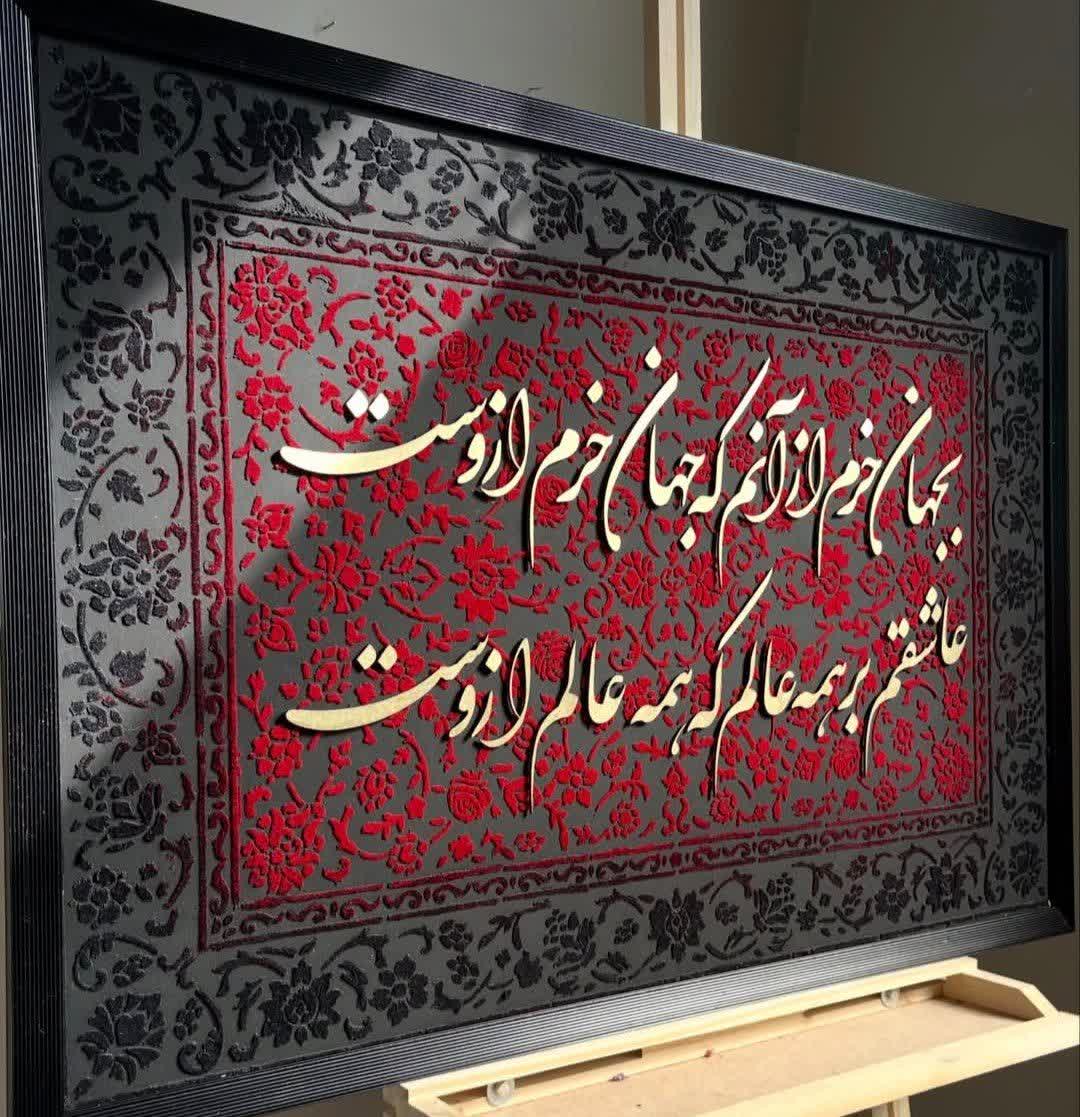 بجهان خرم از آنم که جهان خرم ازوست
عاشقم بر همه عالم که همه عالم ازوست